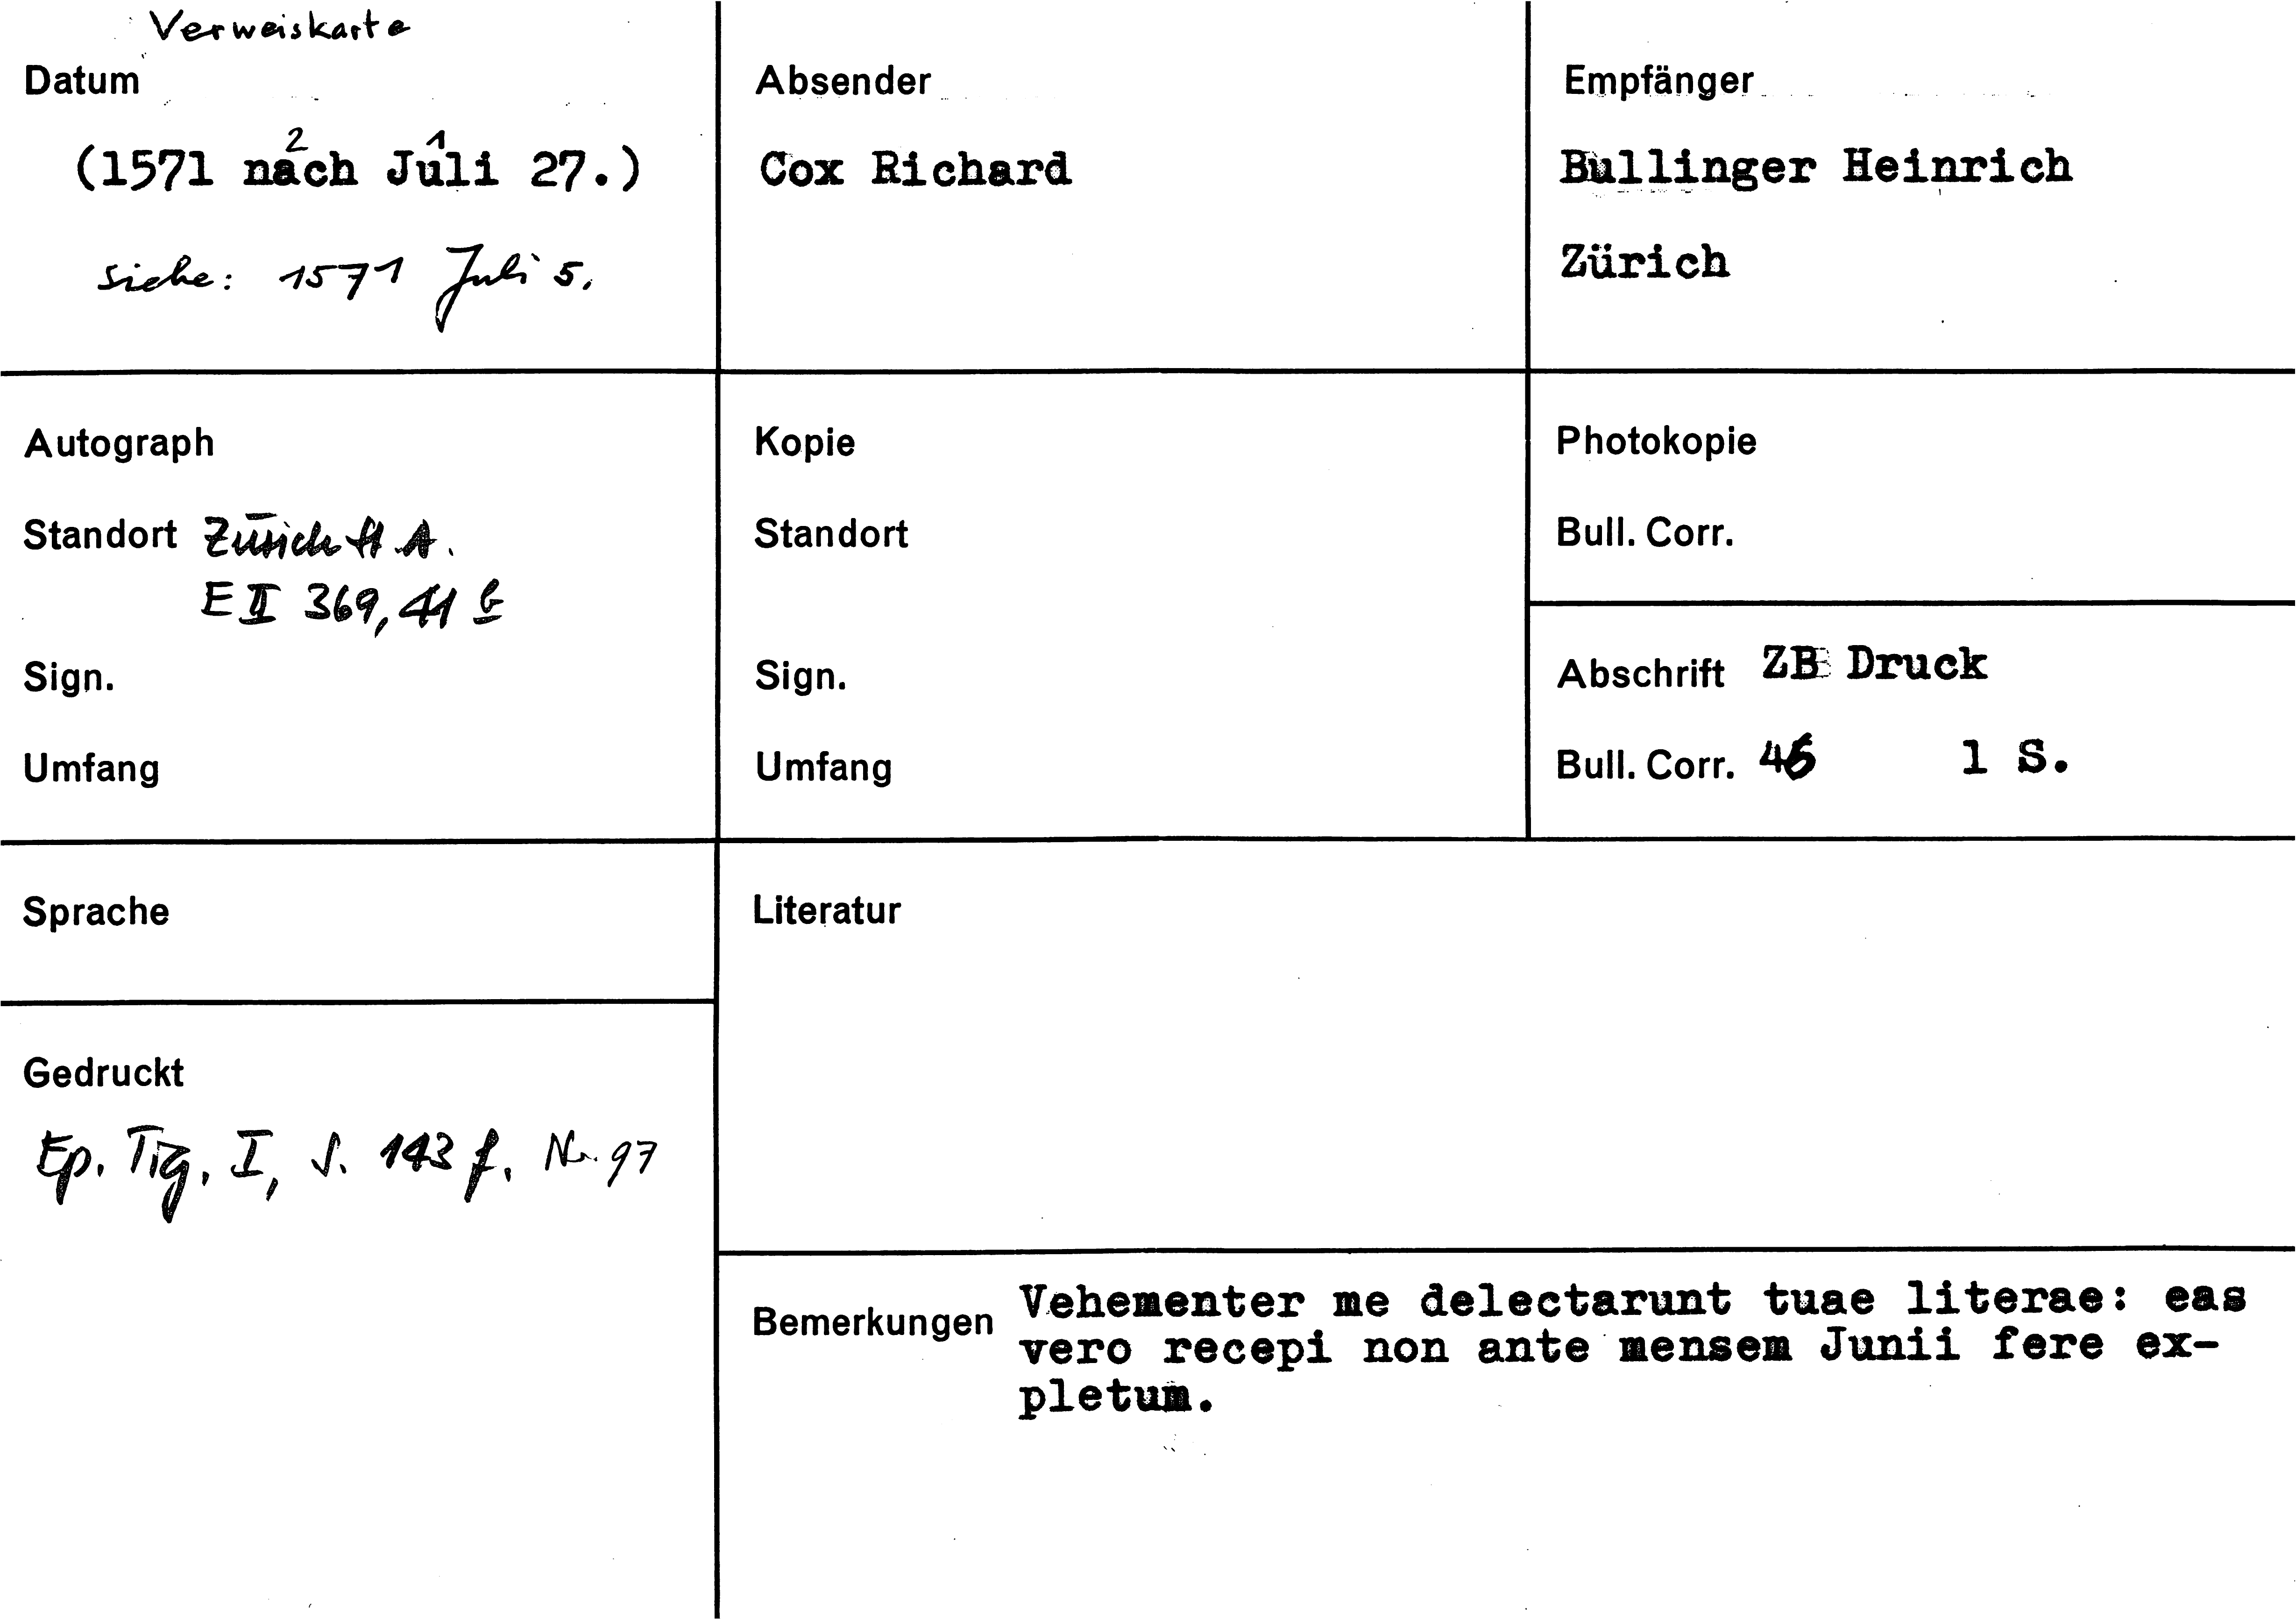 Verweiskarte
Datum
2 1
(1571 nach Juli 27.)
siehe: 1571 Juli 5.
Absender
Cox Richard
Empfänger
Bullinger Heinrich
Zürich
Autograph
Standort Zürich StA.
E II 369, 41 b
Sign.
Umfang
Kopie
Standort
Sign.
Umfang
Photokopie
Bull. Corr.
Abschrift ZB Druck
Bull. Corr. 1 S.
Sprache
Gedruckt
Ep. Tig. I, S. 143 f. Nr. 97
Literatur
Bemerkungen Vehementer me delectarunt tuae literae: eas
vero recepi non ante mensem Junii fere ex-
pletum.